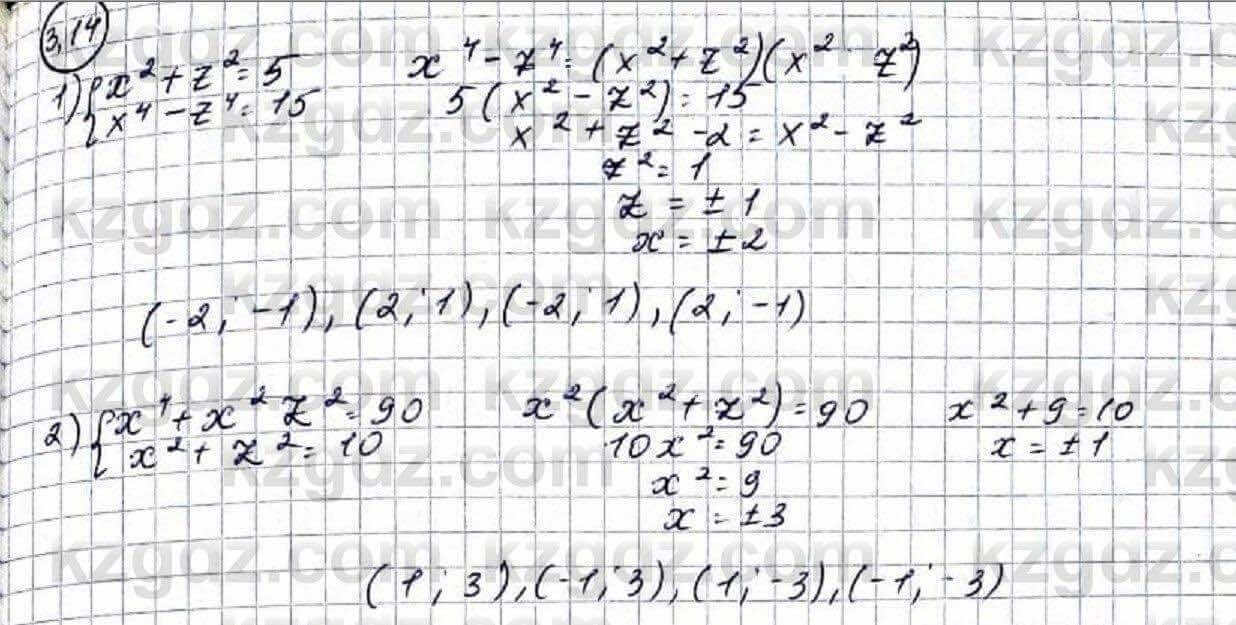 3,14
1) { x² + z² = 5
x⁴ - z⁴ = 15
x⁴ - z⁴ = (x² + z²)(x² z²)
5(x² - z²) = 15
x² + z² - 2 = x² - z²
z² = 1
z = ± 1
x = ± 2
(-2; -1), (2; 1), (-2; 1), (2; -1)
2) { x⁴ + x² z² = 90
x² + z² = 10
x² (x² + z²) = 90
10x² = 90
x² = 9
x = ±3
x² + 9 = 10
x = ±1
(1; 3), (-1; 3), (1; -3), (-1; -3)
kzgdz.com